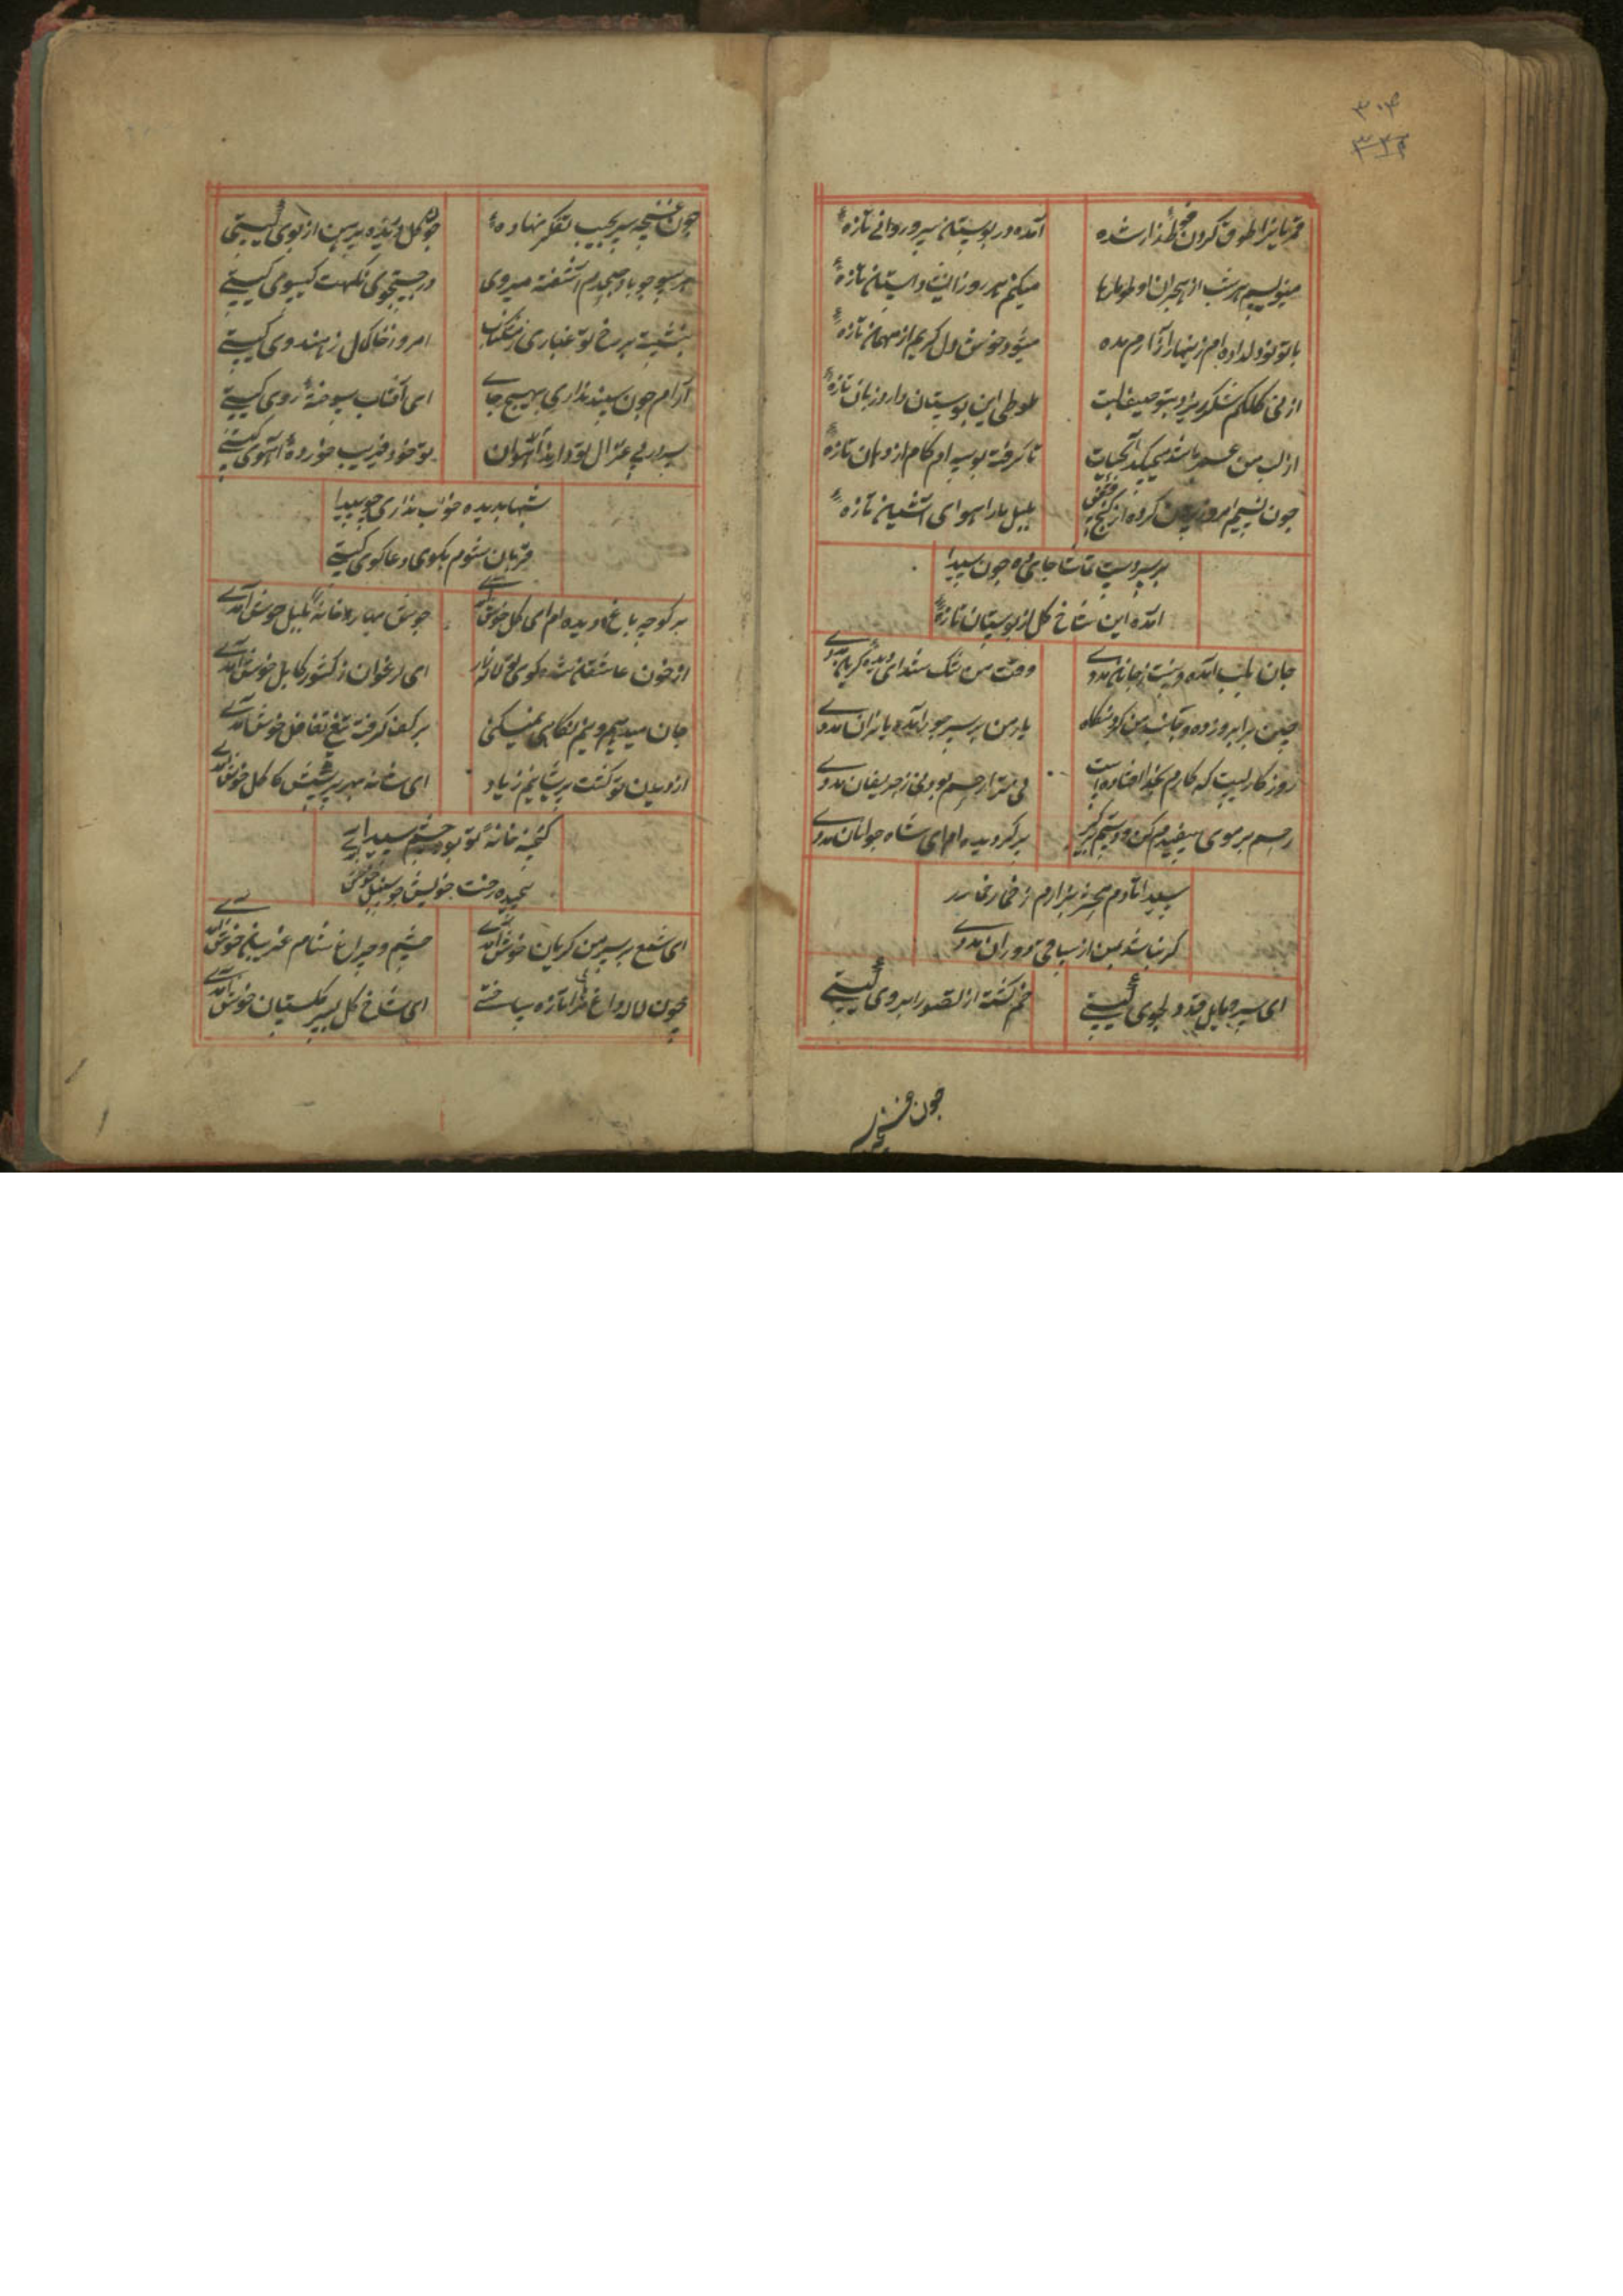 ۳۰۴
۳۳۴
قمریانرا طوق گردن خط شده
آمده در بوستان سرو روانی تازهٔ
مینویسم هر شب از هجران او طومارها
میکنم هر روز انشا داستانی تازهٔ
با تو نو دلداده ام زینهار آزارم مده
میشود خوش دل کریم از میهمان تازهٔ
از نی کلکم شکر ریزد بتوصیف لبت
طوطی این بوستان دارد زبان تازهٔ
از لب من عمر باشد میچکد آبحیات
تا گرفته بوسه ام کام از دهان تازهٔ
چون نسیم امروز بیرون کرده از کنج قفس
بلبل ما را هوای آشیان تازهٔ
بر سر دست تماشا جای ده چون سیدا
آمده این شاخ گل از بوستان تازهٔ
جان بلب آمده و نیست ز جانان مددی
وقت من تنگ شد ای دیدهٔ گریان مددی
چین بر ابرو زده و جانب من کرد نگاه
یار من بر سر جور آمده یاران مددی
روزگاریست که کارم بخدا افتاده است
نی مرا رحم بود نی ز حریفان مددی
رحم بر موی سفیدم کن و دستم برگیر
پیر گردیده ام ای شاه جوانان مددی
سیدا تا دم محشر نبرآرم ز خمار
گر نباشد بمن از ساقی دوران مددی
ای سرو مایل قد دلجوی کیستی
خم گشته از تصور ابروی کیستی
چون غنچه سر
چون غنچه سر بجیب تفکر نهادهٔ
چو گل دریده پیرهن از بوی کیستی
هر سو چو باد صبحدم آشفته میروی
در جستجوی نکهت گیسوی کیستی
بنشسته بر رخ تو غباری ز مشکناب
امروز خاکمال ز هندوی کیستی
آرام چون سپند نداری بهیچ جای
ای آفتاب سوختهٔ روی کیستی
سر در پی غزال تو دارند آهوان
تو خود فریب خوردهٔ آهوی کیستی
شبها بدیده خواب نداری چو سیدا
قربان شوم بگوی دعاگوی کیستی
بر کوچه باغ دیده ام ای گل خوش آمدی
جوش بهار خانهٔ بلبل خوش آمدی
از خون عاشقان شده کوی تو لاله زار
ای ارغوان ز کشور کابل خوش آمدی
جان میدهیم و نیم نگاهی نمیکنی
بر کف گرفته تیغ تغافل خوش آمدی
از دیدن تو گشت پریشانیم زیاد
ای شانه بهر پرسش کاکل خوش آمدی
گنجینه خانهٔ تو بود چشم سیدا
پیچیده رخت خویش چو سنبل خوش آمدی
ای شمع بر سر من گریان خوش آمدی
چشم و چراغ شام غریبان خوش آمدی
چون لاله داغ مرا تازه ساختی
ای شاخ گل بسیر گلستان خوش آمدی